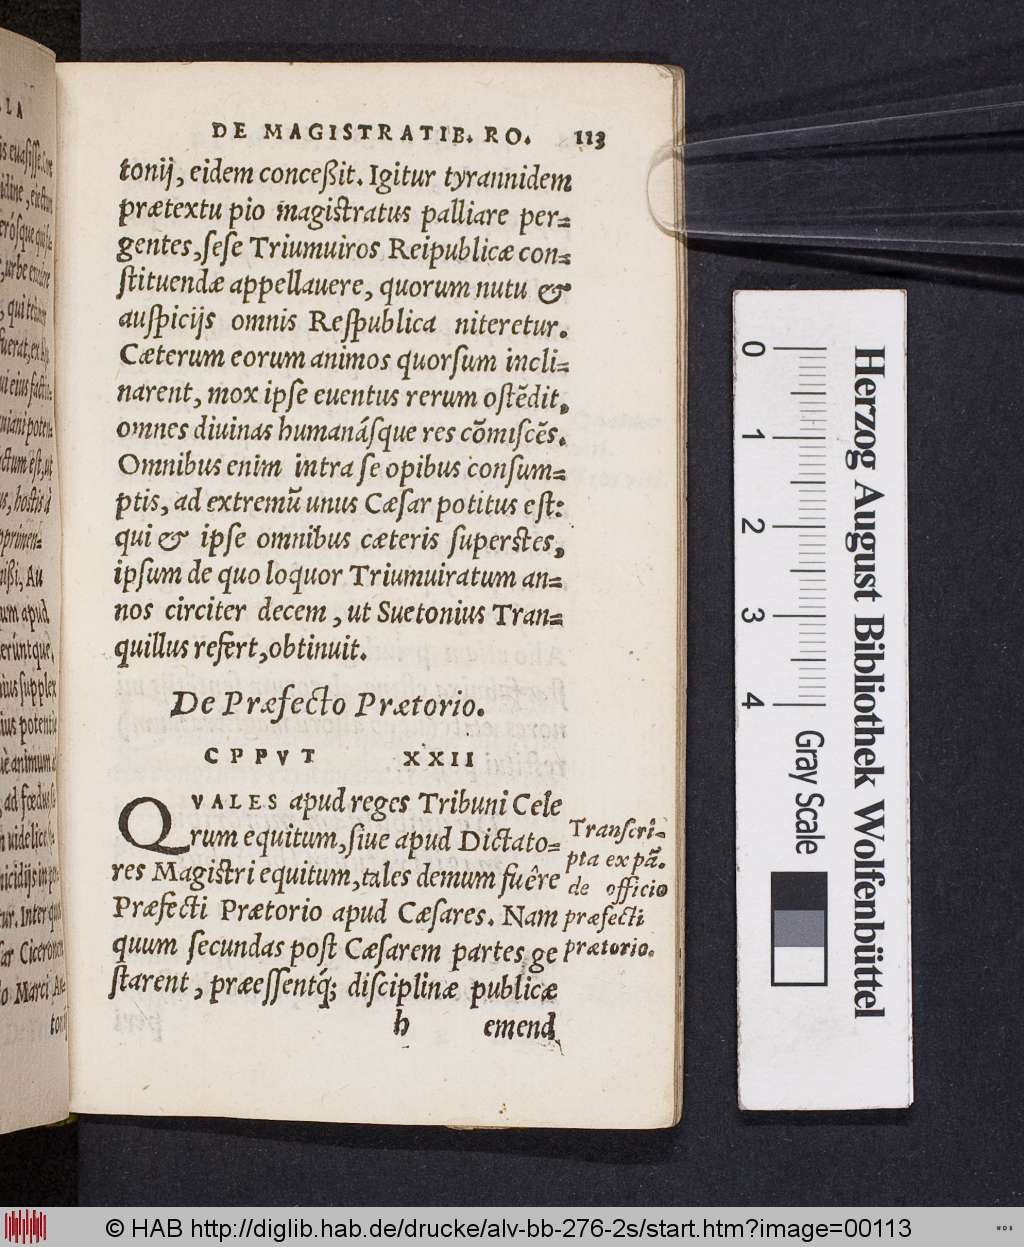 DE MAGISTRATIB. RO. 113
tonij, eidem conceßit. Igitur tyrannidem
prætextu pio magistratus palliare per=
gentes, ſeſe Triumuiros Reipublicæ con=
ſtituendæ appellauere, quorum nutu &
auſpicijs omnis Reſpublica niteretur.
Cæterum eorum animos quorſum incli=
narent, mox ipſe euentus rerum oſtẽdit,
omnes diuinas humanáſque res cõmiſcẽs.
Omnibus enim intra ſe opibus conſum=
ptis, ad extremũ unus Cæſar potitus eſt:
qui & ipſe omnibus cæteris ſuperſtes,
ipſum de quo loquor Triumuiratum an=
nos circiter decem, ut Suetonius Tran=
quillus refert, obtinuit.
De Præfecto Prætorio.
CPPVT XXII
QVALES apud reges Tribuni Cele
rum equitum, ſiue apud Dictato=
res Magiſtri equitum, tales demum fuêre
Præfecti Prætorio apud Cæſares. Nam
quum ſecundas poſt Cæſarem partes ge
ſtarent, præeſſentq́; diſciplinæ publicæ
h emend
Tranſcri=
pta ex pã.
de officio
præfecti
prætorio.
LA
ad fœdus
Cicerone
Marci An=
0 1 2 3 4
Gray Scale
Herzog August Bibliothek Wolfenbüttel
© HAB http://diglib.hab.de/drucke/alv-bb-276-2s/start.htm?image=00113